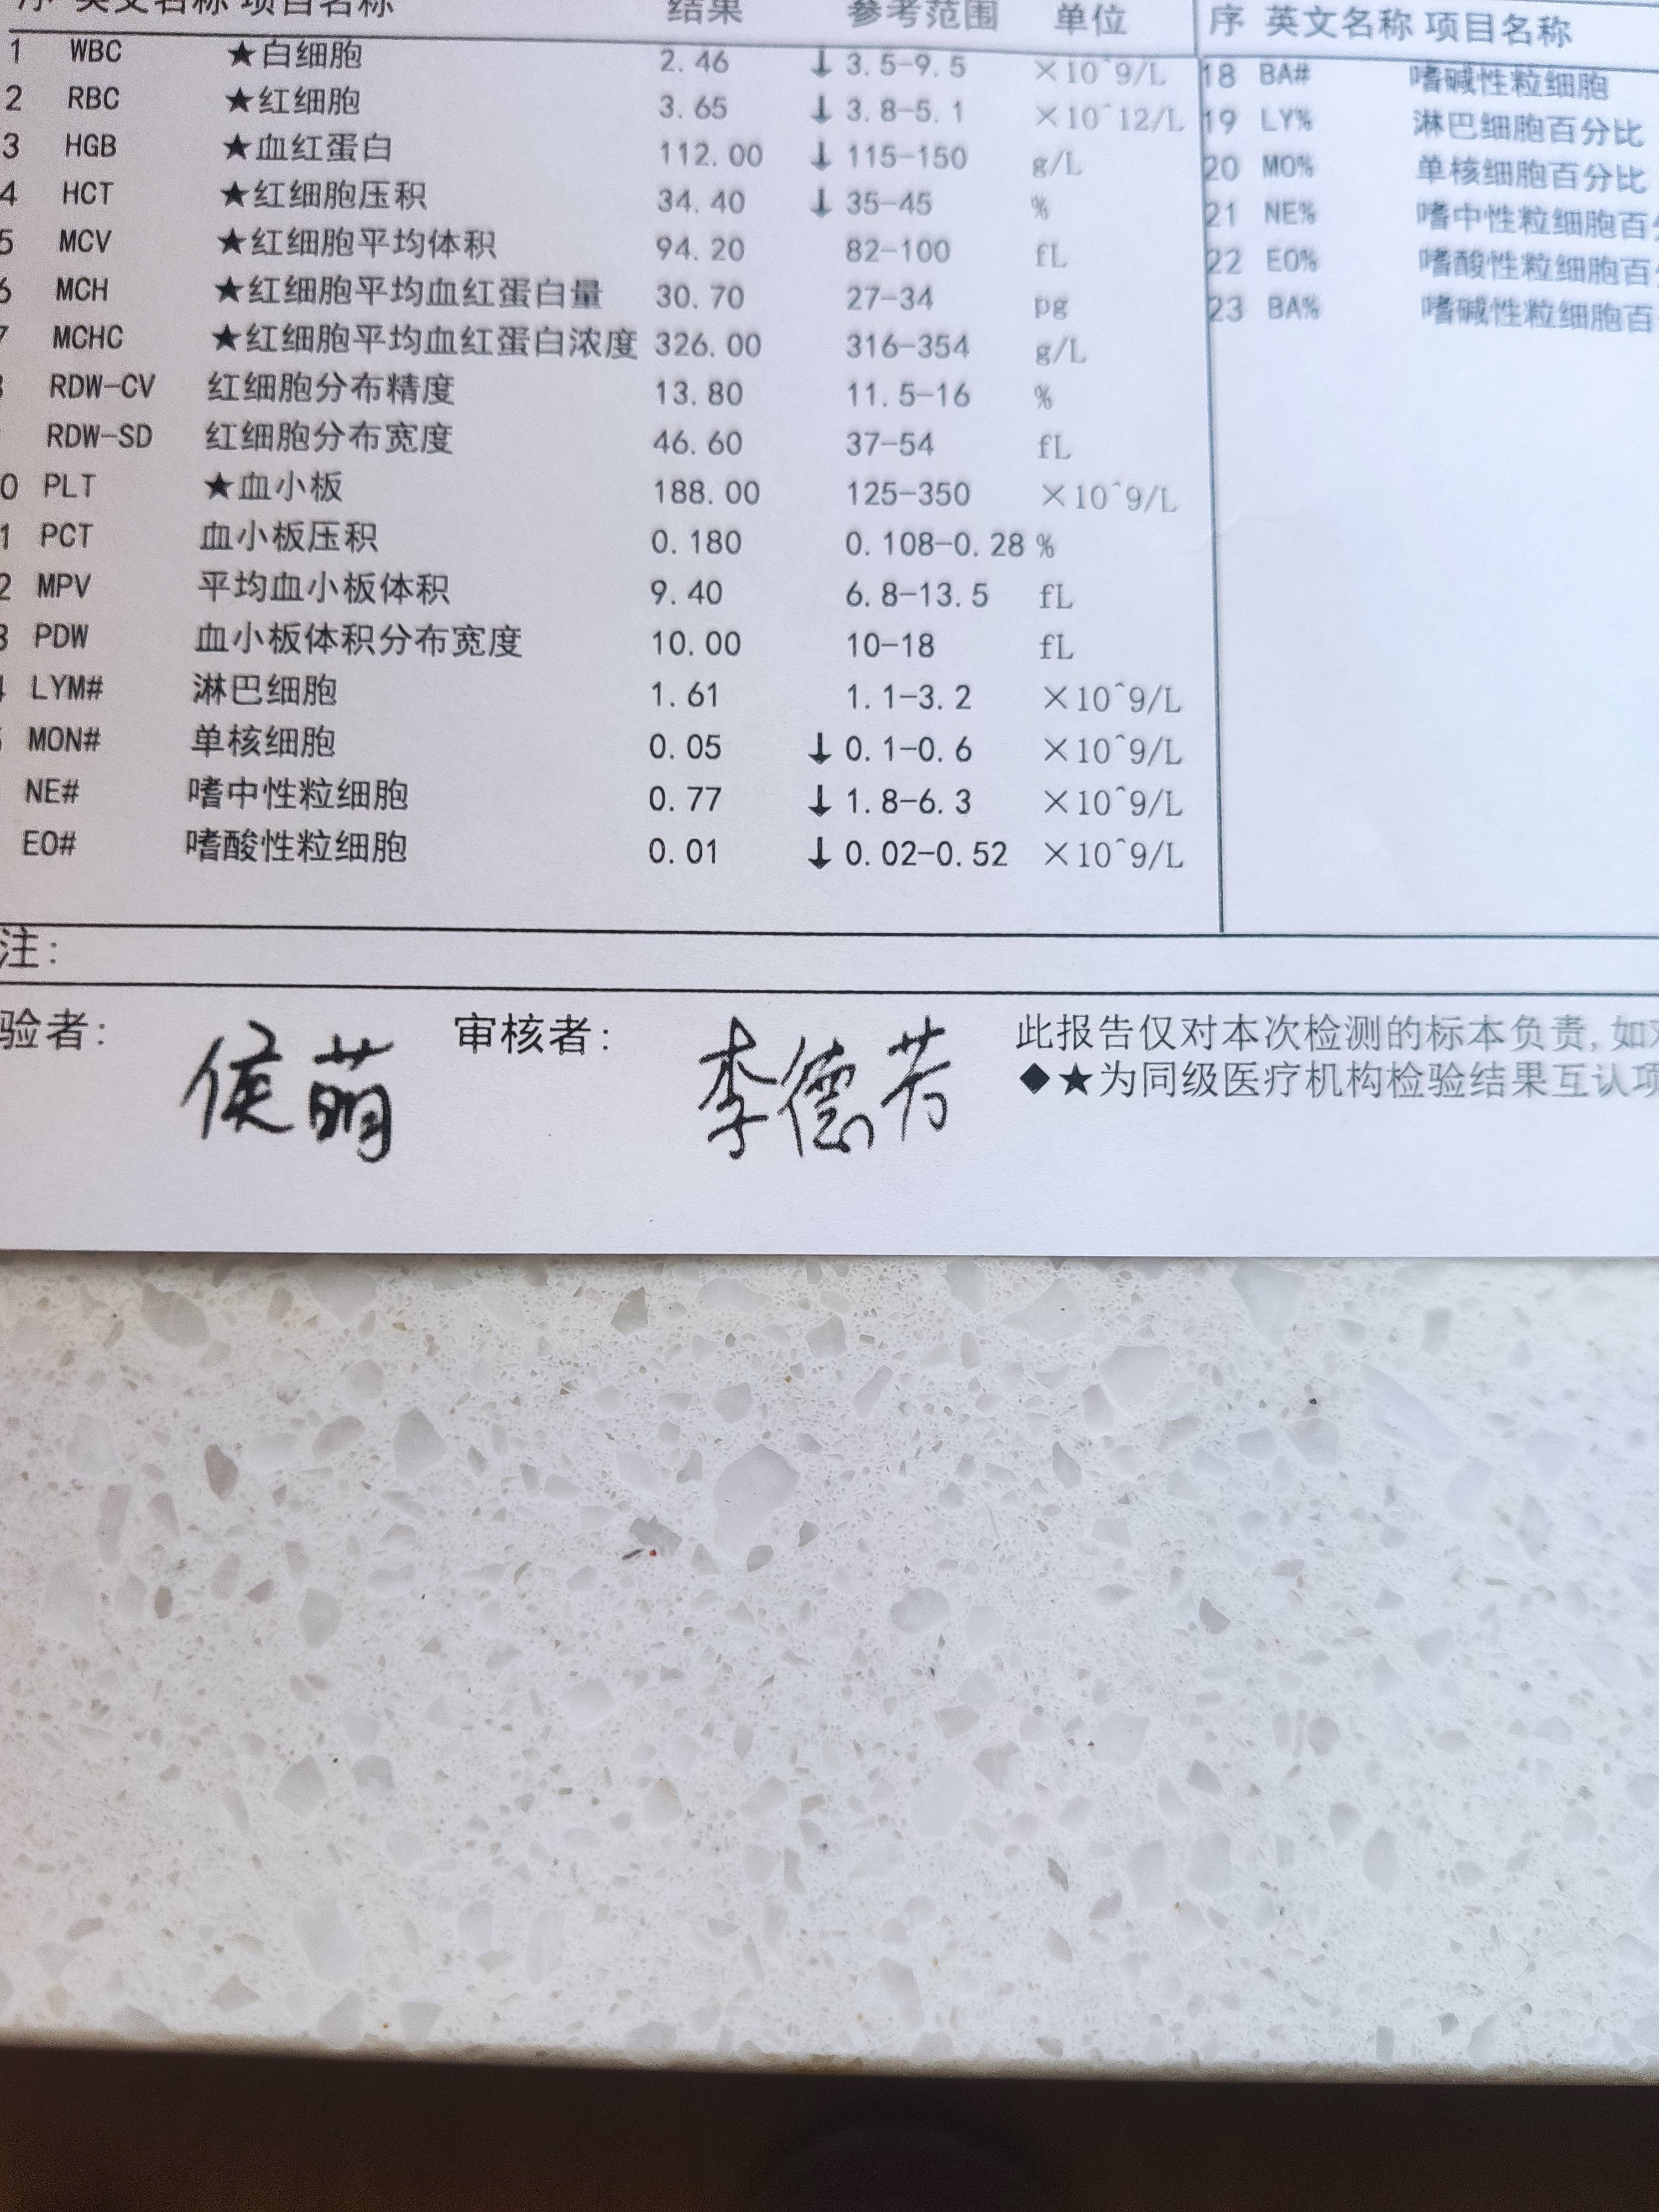 序 英文名称 项目名称 结果 参考范围 单位 序 英文名称 项目名称
1 WBC ★白细胞 2.46 ↓ 3.5-9.5 ×10^9/L 18 BA# 嗜碱性粒细胞
2 RBC ★红细胞 3.65 ↓ 3.8-5.1 ×10^12/L 19 LY% 淋巴细胞百分比
3 HGB ★血红蛋白 112.00 ↓ 115-150 g/L 20 MO% 单核细胞百分比
4 HCT ★红细胞压积 34.40 ↓ 35-45 % 21 NE% 嗜中性粒细胞百
5 MCV ★红细胞平均体积 94.20 82-100 fL 22 EO% 嗜酸性粒细胞百
6 MCH ★红细胞平均血红蛋白量 30.70 27-34 pg 23 BA% 嗜碱性粒细胞百
7 MCHC ★红细胞平均血红蛋白浓度 326.00 316-354 g/L
RDW-CV 红细胞分布精度 13.80 11.5-16 %
RDW-SD 红细胞分布宽度 46.60 37-54 fL
0 PLT ★血小板 188.00 125-350 ×10^9/L
1 PCT 血小板压积 0.180 0.108-0.28 %
2 MPV 平均血小板体积 9.40 6.8-13.5 fL
3 PDW 血小板体积分布宽度 10.00 10-18 fL
LYM# 淋巴细胞 1.61 1.1-3.2 ×10^9/L
MON# 单核细胞 0.05 ↓ 0.1-0.6 ×10^9/L
NE# 嗜中性粒细胞 0.77 ↓ 1.8-6.3 ×10^9/L
EO# 嗜酸性粒细胞 0.01 ↓ 0.02-0.52 ×10^9/L
注:
验者: 侯萌 审核者: 李德芳 此报告仅对本次检测的标本负责,如
◆★为同级医疗机构检验结果互认项